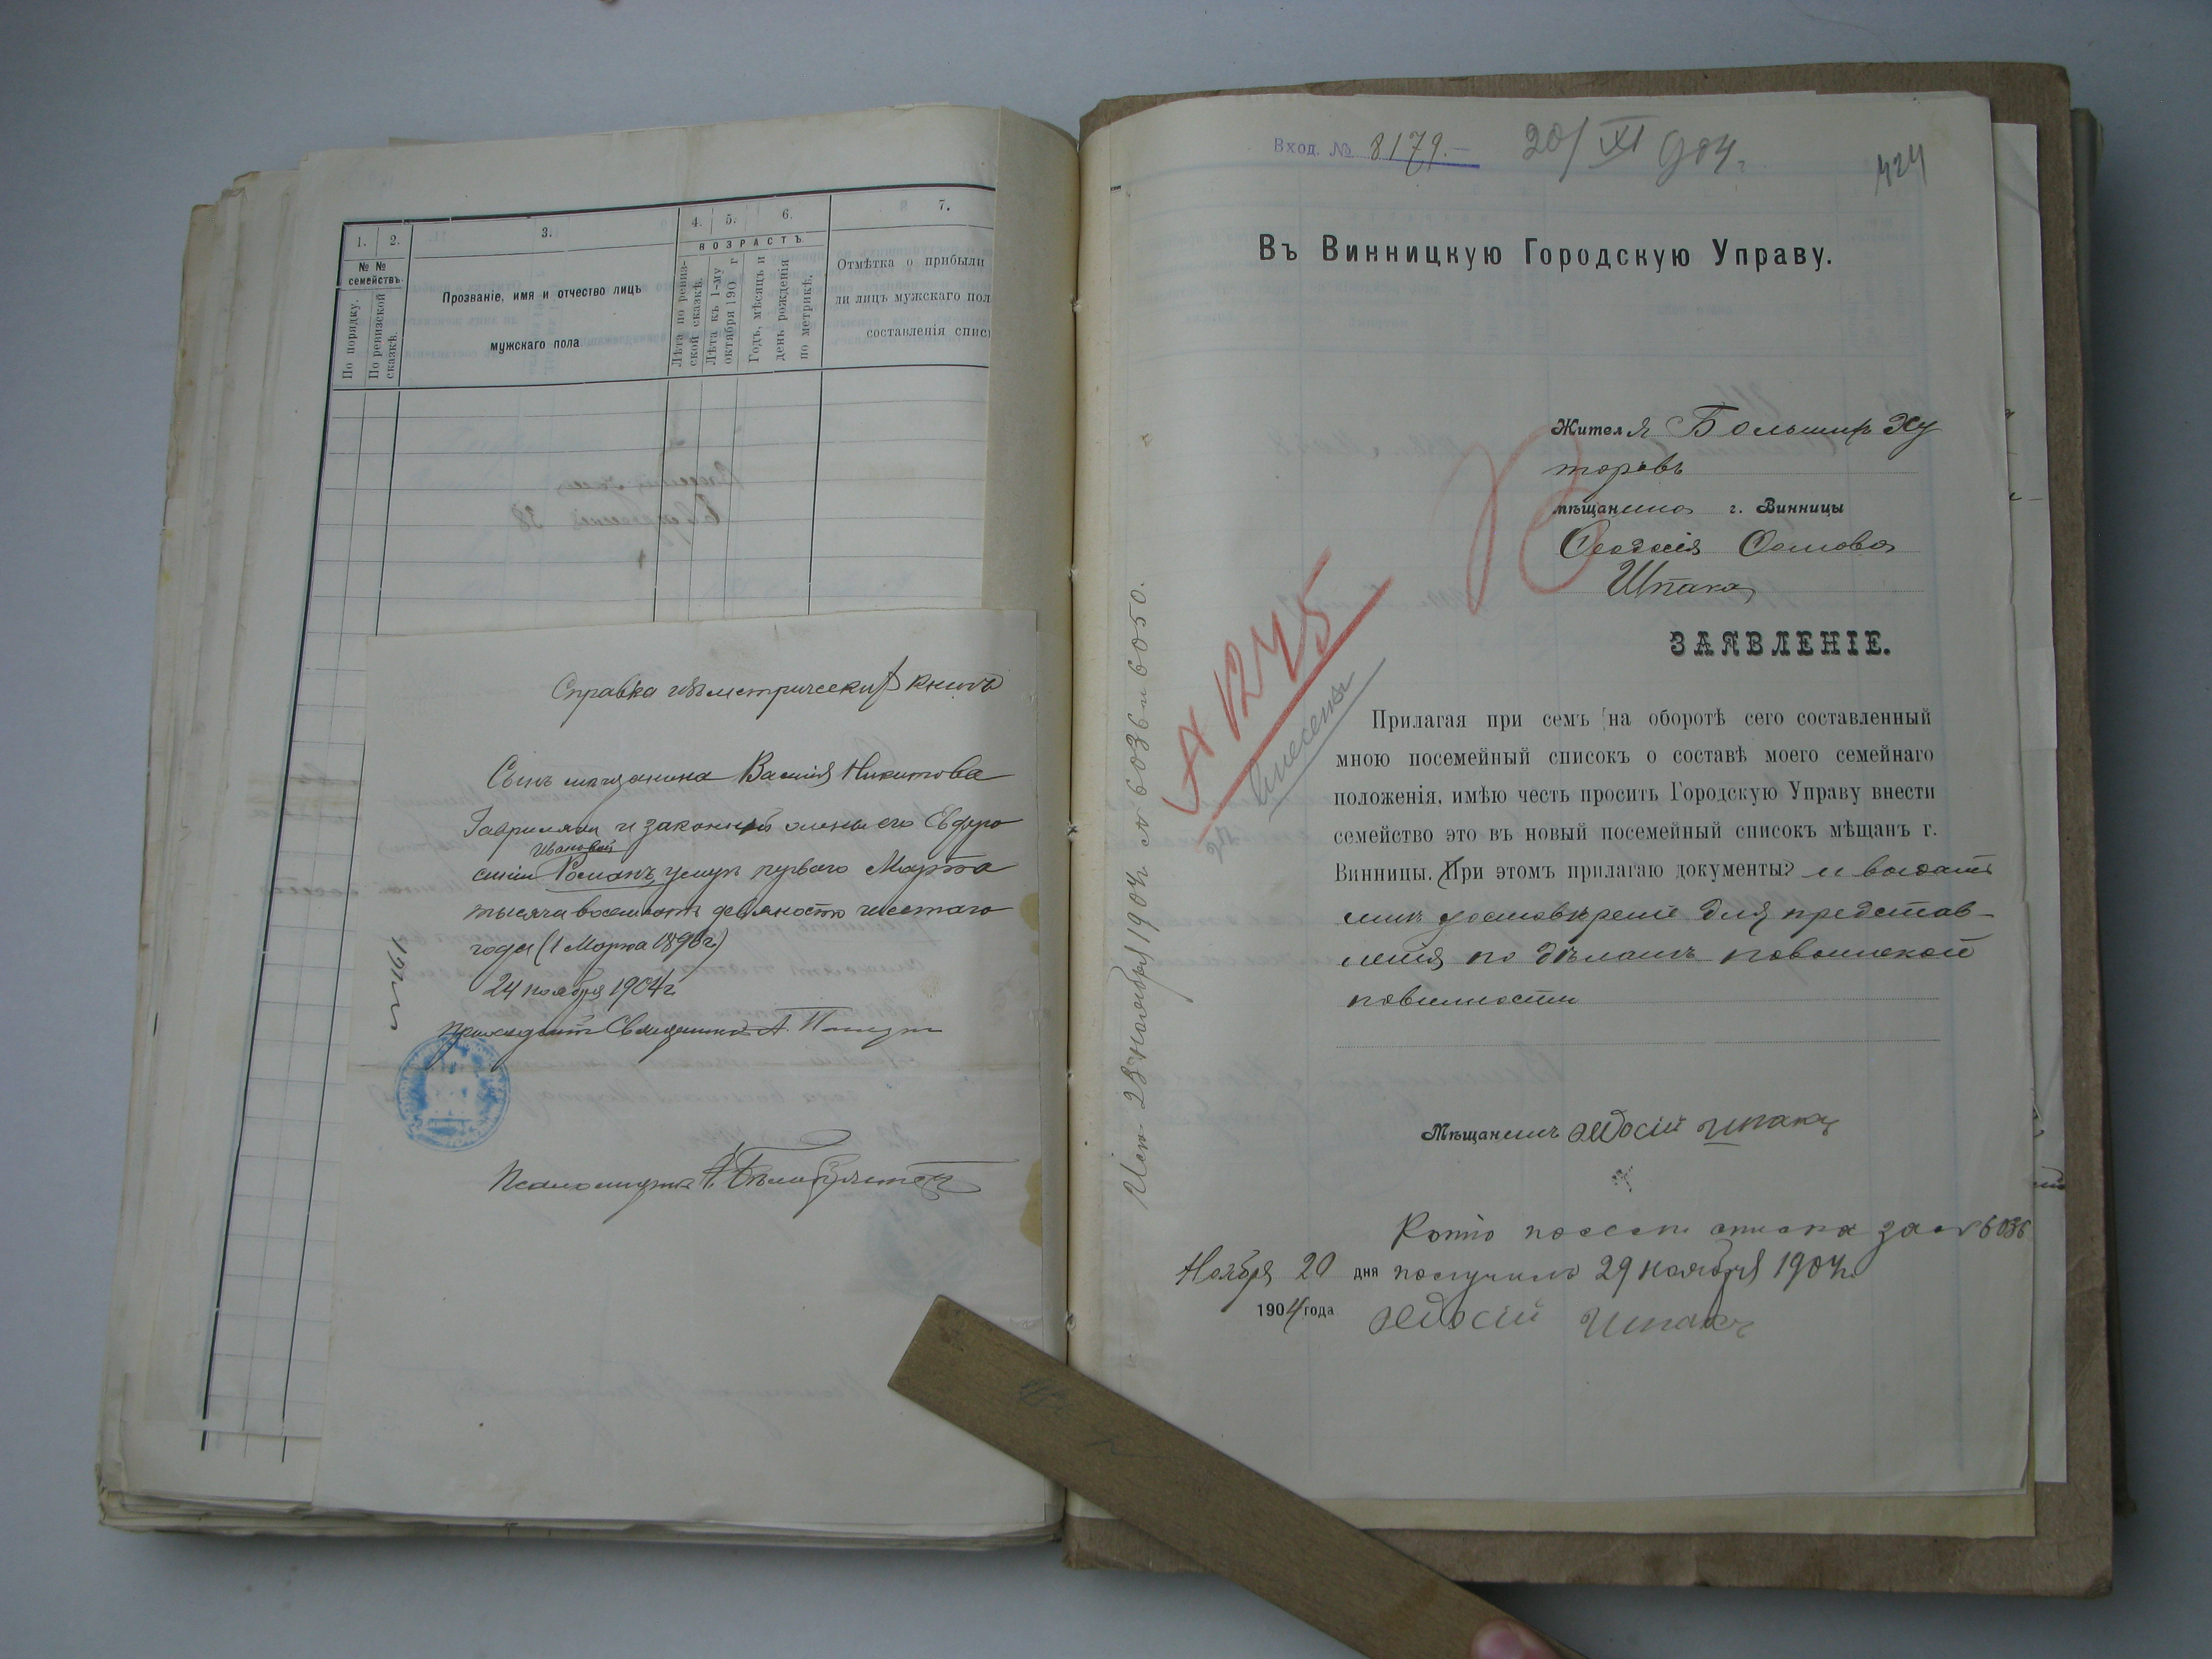 1. 2. 3. 4. 5. 6. 7.
ВОЗРАСТЪ
№ № семействъ.
По порядку.
По ревизской сказкѣ.
Прозваніе, имя и отчество лицъ
мужскаго пола
Лѣта по ревизской сказкѣ.
Лѣта къ 1-му октября 190 г
Годъ, мѣсяцъ и день рожденія по метрикѣ.
Отмѣтка о прибыли
ли лицъ мужскаго пол
составленія спис
Справка изъ метрическихъ книгъ
Сынъ мѣщанина Василія Никитова
Гаврилюка и законной жены его Евфро
Ивановой
синіи Романъ, умеръ перваго Марта
тысяча восемьсотъ девяносто шестаго
года (1 Марта 1896 г.)
24 ноября 1904 г.
Священникъ А.
Псаломщикъ
Вход. № 8179.—
20/XI 904 г.
424
Въ Винницкую Городскую Управу.
Жителя Большихъ Ху
торовъ
мѣщанина г. Винницы
Феодосія Осипова
Шпака
ЗАЯВЛЕНІЕ.
А 1245
Внесены
Исп. 23 ноября 1904 г. № 6036 и 6050.
Прилагая при семъ на оборотѣ сего составленный
мною посемейный списокъ о составѣ моего семейнаго
положенія, имѣю честь просить Городскую Управу внести
семейство это въ новый посемейный списокъ мѣщанъ г.
Винницы. При этомъ прилагаю документы: и выдать
мнѣ удостовѣреніе для представ-
ленія по дѣламъ по воинской
повинности
Мѣщанинъ Ѳедосій Шпакъ
Копію посем. списка за № 6036
Ноября 20 дня получилъ 29 ноября 1904 г.
1904 года Ѳедосій Шпакъ